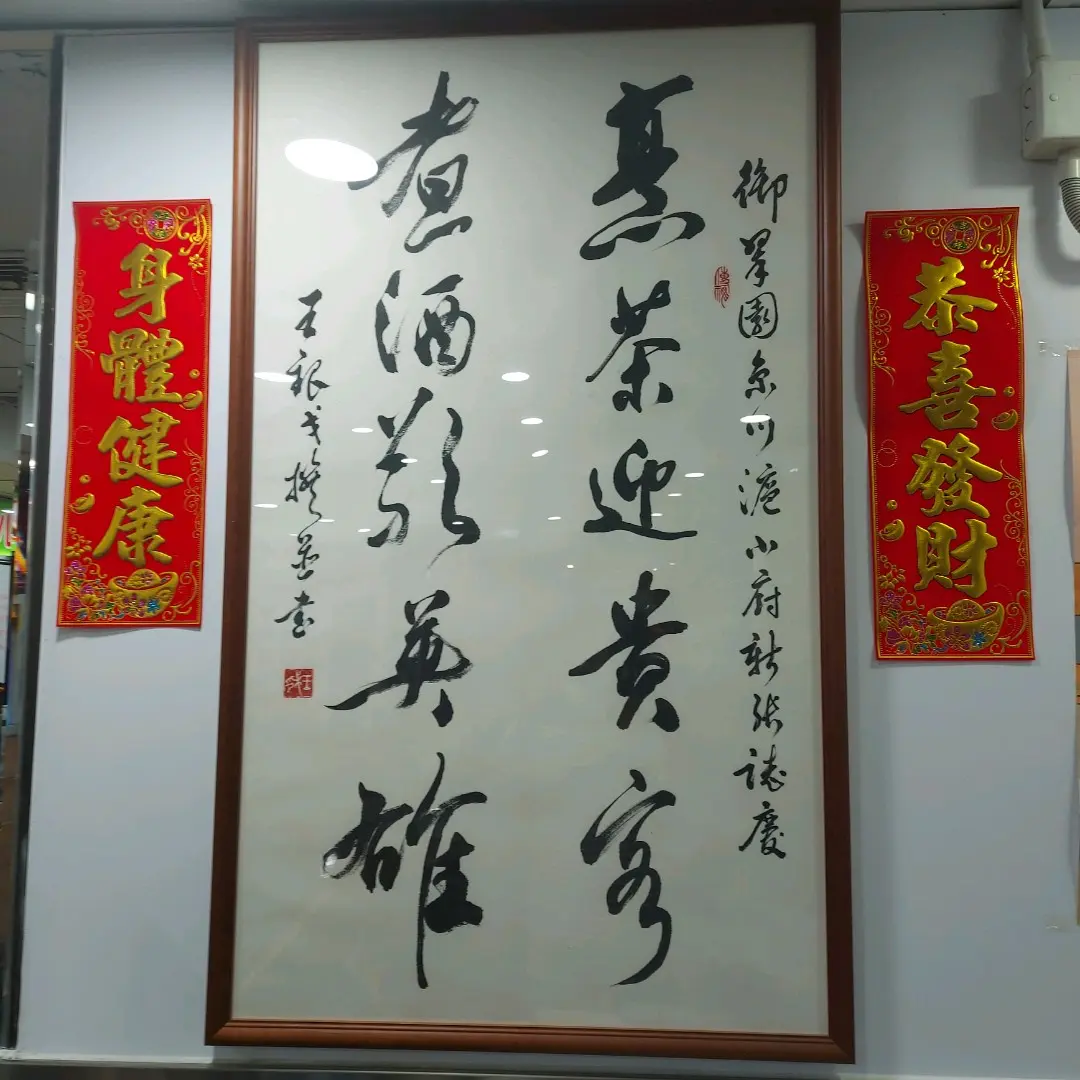 恭喜發財
御翠園京川滬小府新張誌慶
烹茶迎貴客
煮酒敬英雄
王銀戈撰並書
身體健康